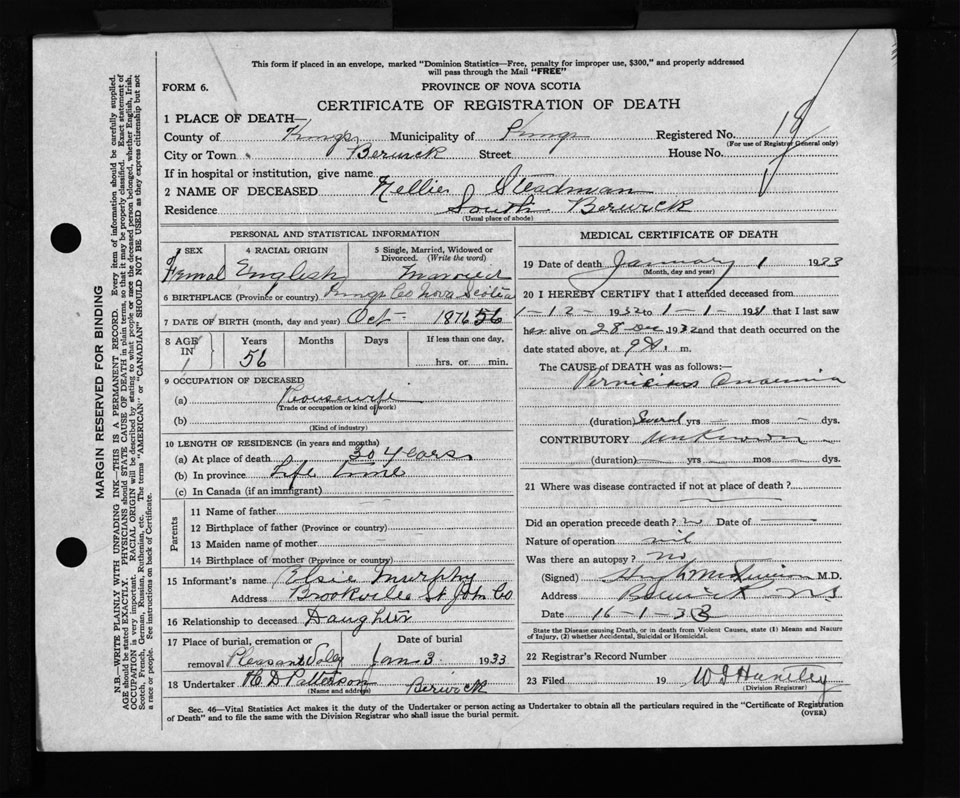 This form if placed in an envelope, marked "Dominion Statistics—Free, penalty for improper use, $300," and properly addressed
will pass through the Mail "FREE"
FORM 6.
PROVINCE OF NOVA SCOTIA
CERTIFICATE OF REGISTRATION OF DEATH
1 PLACE OF DEATH—
County of Kings Municipality of Kings Registered No. 18
(For use of Registrar General only)
City or Town Berwick Street House No.
If in hospital or institution, give name
2 NAME OF DECEASED Nellie J Steadman
Residence South Berwick
(Usual place of abode)
PERSONAL AND STATISTICAL INFORMATION
3 SEX 4 RACIAL ORIGIN 5 Single, Married, Widowed or
Divorced. (Write the word)
Femal English Married
6 BIRTHPLACE (Province or country) Kings Co Nova Scotia
7 DATE OF BIRTH (month, day and year) Oct - 1876 56
8 AGE IN Years Months Days If less than one day,
56 hrs. or min.
9 OCCUPATION OF DECEASED
(a) Housewife
(Trade or occupation or kind of work)
(b)
(Kind of industry)
10 LENGTH OF RESIDENCE (in years and months)
(a) At place of death 30 years
(b) In province Life time
(c) In Canada (if an immigrant)
Parents
11 Name of father
12 Birthplace of father (Province or country)
13 Maiden name of mother
14 Birthplace of mother (Province or country)
15 Informant's name Elsie Murphy
Address Brookville St John Co
16 Relationship to deceased Daughter
17 Place of burial, cremation or Date of burial
removal Pleasant Valey Jan 3 1933
18 Undertaker H D Patterson Berwick
(Name and address)
MEDICAL CERTIFICATE OF DEATH
19 Date of death January 1 1933
(Month, day and year)
20 I HEREBY CERTIFY that I attended deceased from
1-12-1932 to 1-1-193 that I last saw
her alive on 28 Dec 1932 and that death occurred on the
date stated above, at 9 m.
The CAUSE OF DEATH was as follows:—
Pernicious Anaemia
(duration) Several yrs mos dys.
CONTRIBUTORY Unknown
(duration) yrs mos dys.
21 Where was disease contracted if not at place of death?
Did an operation precede death? Date of
Nature of operation nil
Was there an autopsy? no
(Signed) M.D.
Address Berwick NS
Date 16-1-33
State the Disease causing Death, or in death from Violent Causes, state (1) Means and Nature
of Injury, (2) whether Accidental, Suicidal or Homicidal.
22 Registrar's Record Number
23 Filed 19 Huntley
(Division Registrar)
Sec. 46—Vital Statistics Act makes it the duty of the Undertaker or person acting as Undertaker to obtain all the particulars required in the "Certificate of Registration
of Death" and to file the same with the Division Registrar who shall issue the burial permit.
(OVER)
MARGIN RESERVED FOR BINDING
N.B.—WRITE PLAINLY WITH UNFADING INK—THIS IS A PERMANENT RECORD. Every item of information should be carefully supplied.
AGE should be stated EXACTLY. PHYSICIANS should STATE CAUSE OF DEATH in plain terms, so that it may be properly classified. Exact statement of
OCCUPATION is very important. RACIAL ORIGIN will be described by stating to what people or race the deceased person belonged, whether English, Irish,
Scotch, French, German, Russian, Ruthenian, etc. The terms "AMERICAN" or "CANADIAN" SHOULD NOT BE USED as they express citizenship but not
a race or people. See instructions on back of Certificate.